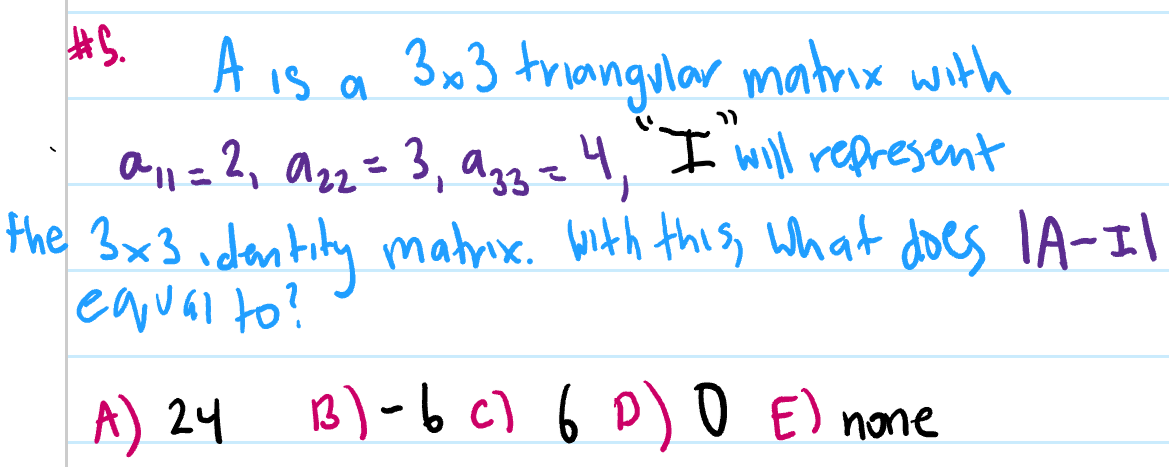 #5.
A is a 3x3 triangular matrix with
a₁₁ = 2, a₂₂ = 3, a₃₃ = 4, "I" will represent
the 3x3 identity matrix. With this, what does |A-I|
equal to?
A) 24 B) -6 C) 6 D) 0 E) none